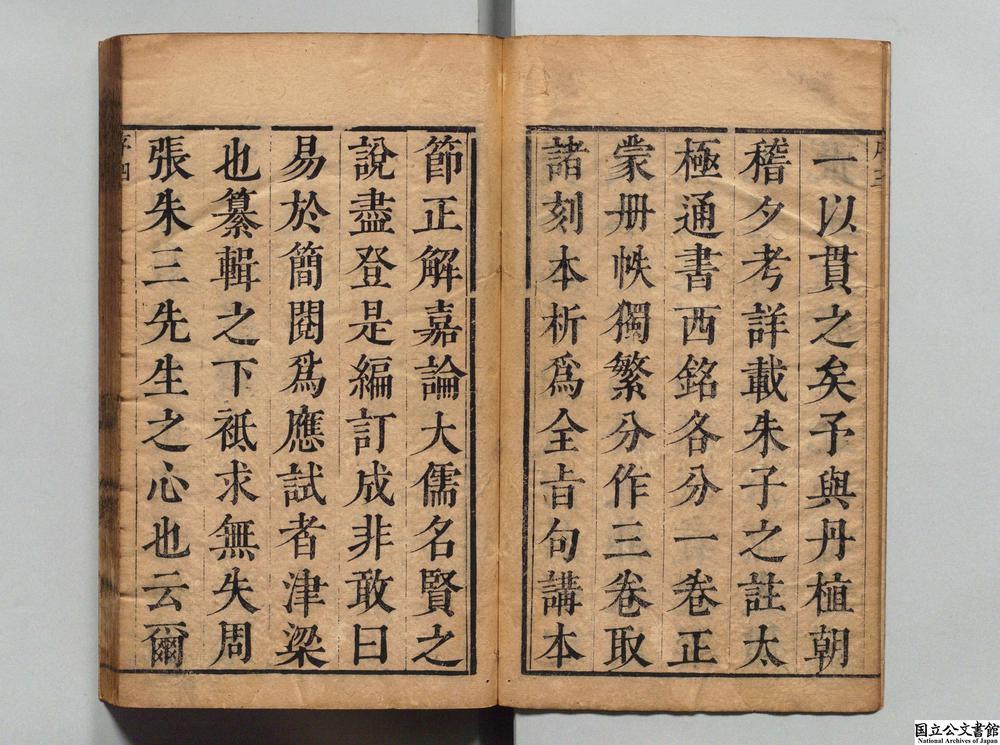 一以貫之矣予與丹植朝
稽夕考詳載朱子之註太
極通書西銘各分一卷正
蒙册帙獨繁分作三卷取
諸刻本析爲全㫖句講本
節正解嘉論大儒名賢之
說盡登是編訂成非敢曰
易於簡閱爲應試者津梁
也纂輯之下祗求無失周
張朱三先生之心也云爾
序四
国立公文書館
National Archives of Japan